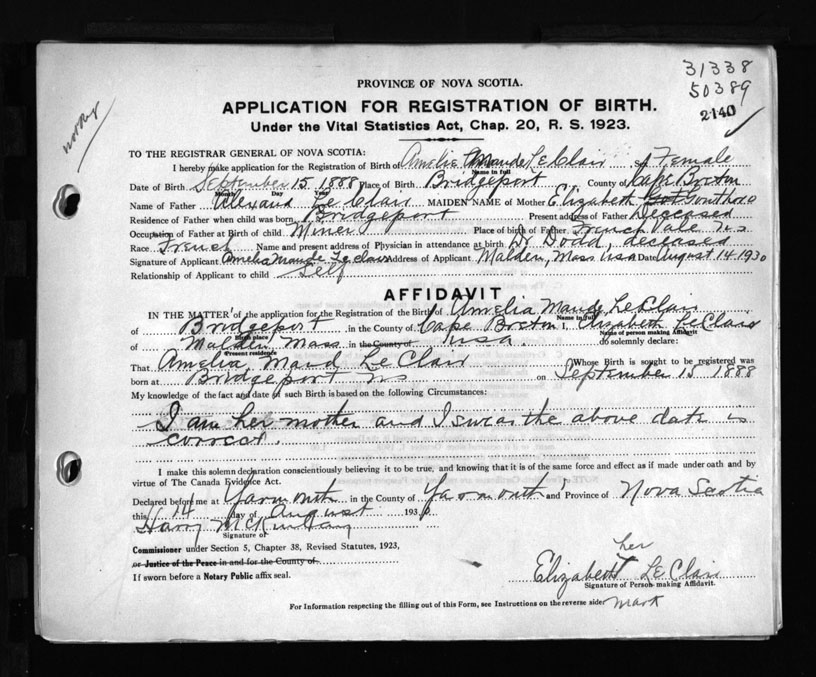 31338
50389
2140
PROVINCE OF NOVA SCOTIA.
APPLICATION FOR REGISTRATION OF BIRTH.
Under the Vital Statistics Act, Chap. 20, R. S. 1923.
TO THE REGISTRAR GENERAL OF NOVA SCOTIA:
I hereby make application for the Registration of Birth of Amelia Maude LeClair Female
Name in full
Date of Birth September 15 1888 Place of Birth Bridgeport County of Cape Breton
Month Day Year
Name of Father Le Clair MAIDEN NAME of Mother Elizabeth
Residence of Father when child was born Bridgeport Present address of Father Deceased
Occupation of Father at Birth of child Miner Place of birth of Father French Vale N.S
Race French Name and present address of Physician in attendance at birth Dr Dodd, deceased
Signature of Applicant Amelia Maude Le Clair Address of Applicant Malden, Mass USA Date August 14 1930
Relationship of Applicant to child Self
AFFIDAVIT
IN THE MATTER of the application for the Registration of the Birth of Amelia Maude LeClair
Name in full
of Bridgeport in the County of Cape Breton I, Elizabeth LeClair
Birth place Name of person making Affidavit
of Malden Mass in the County of USA. do solemnly declare:
Present residence
That Amelia Maud LeClair Whose Birth is sought to be registered was
born at Bridgeport NS on September 15 1888
My knowledge of the fact and date of such Birth is based on the following Circumstances:
I am her mother and I swear the above date is
correct.
I make this solemn declaration conscientiously believing it to be true, and knowing that it is of the same force and effect as if made under oath and by
virtue of The Canada Evidence Act.
Declared before me at Yarmouth in the County of Yarmouth and Province of Nova Scotia
this 14 day of August 1930
Harry McKinlay
Signature of
Commissioner under Section 5, Chapter 38, Revised Statutes, 1923,
or Justice of the Peace in and for the County of
If sworn before a Notary Public affix seal.
her
Elizabeth LeClair
Signature of Person making Affidavit.
mark
For Information respecting the filling out of this Form, see Instructions on the reverse side